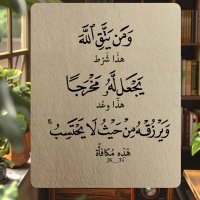 وَمَن يَتَّقِ ٱللَّهَ
هذا شرط
يَجْعَل لَّهُۥ مَخْرَجًا
هذا وعد
وَيَرْزُقْهُ مِنْ حَيْثُ لَا يَحْتَسِبُ ۚ
هذه مكافأة